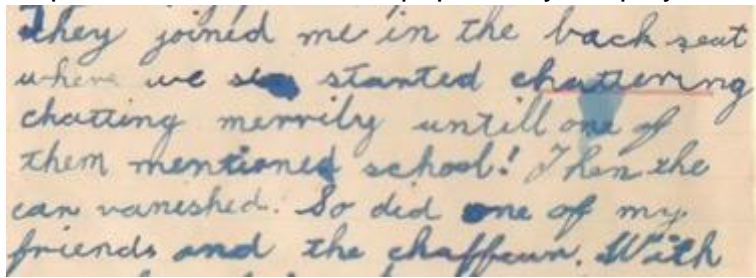 They joined me in the back seat
where we started chattering
chatting merrily untill one of
them mentioned school! Then the
car vanished. So did one of my
friends and the chaffeur. With